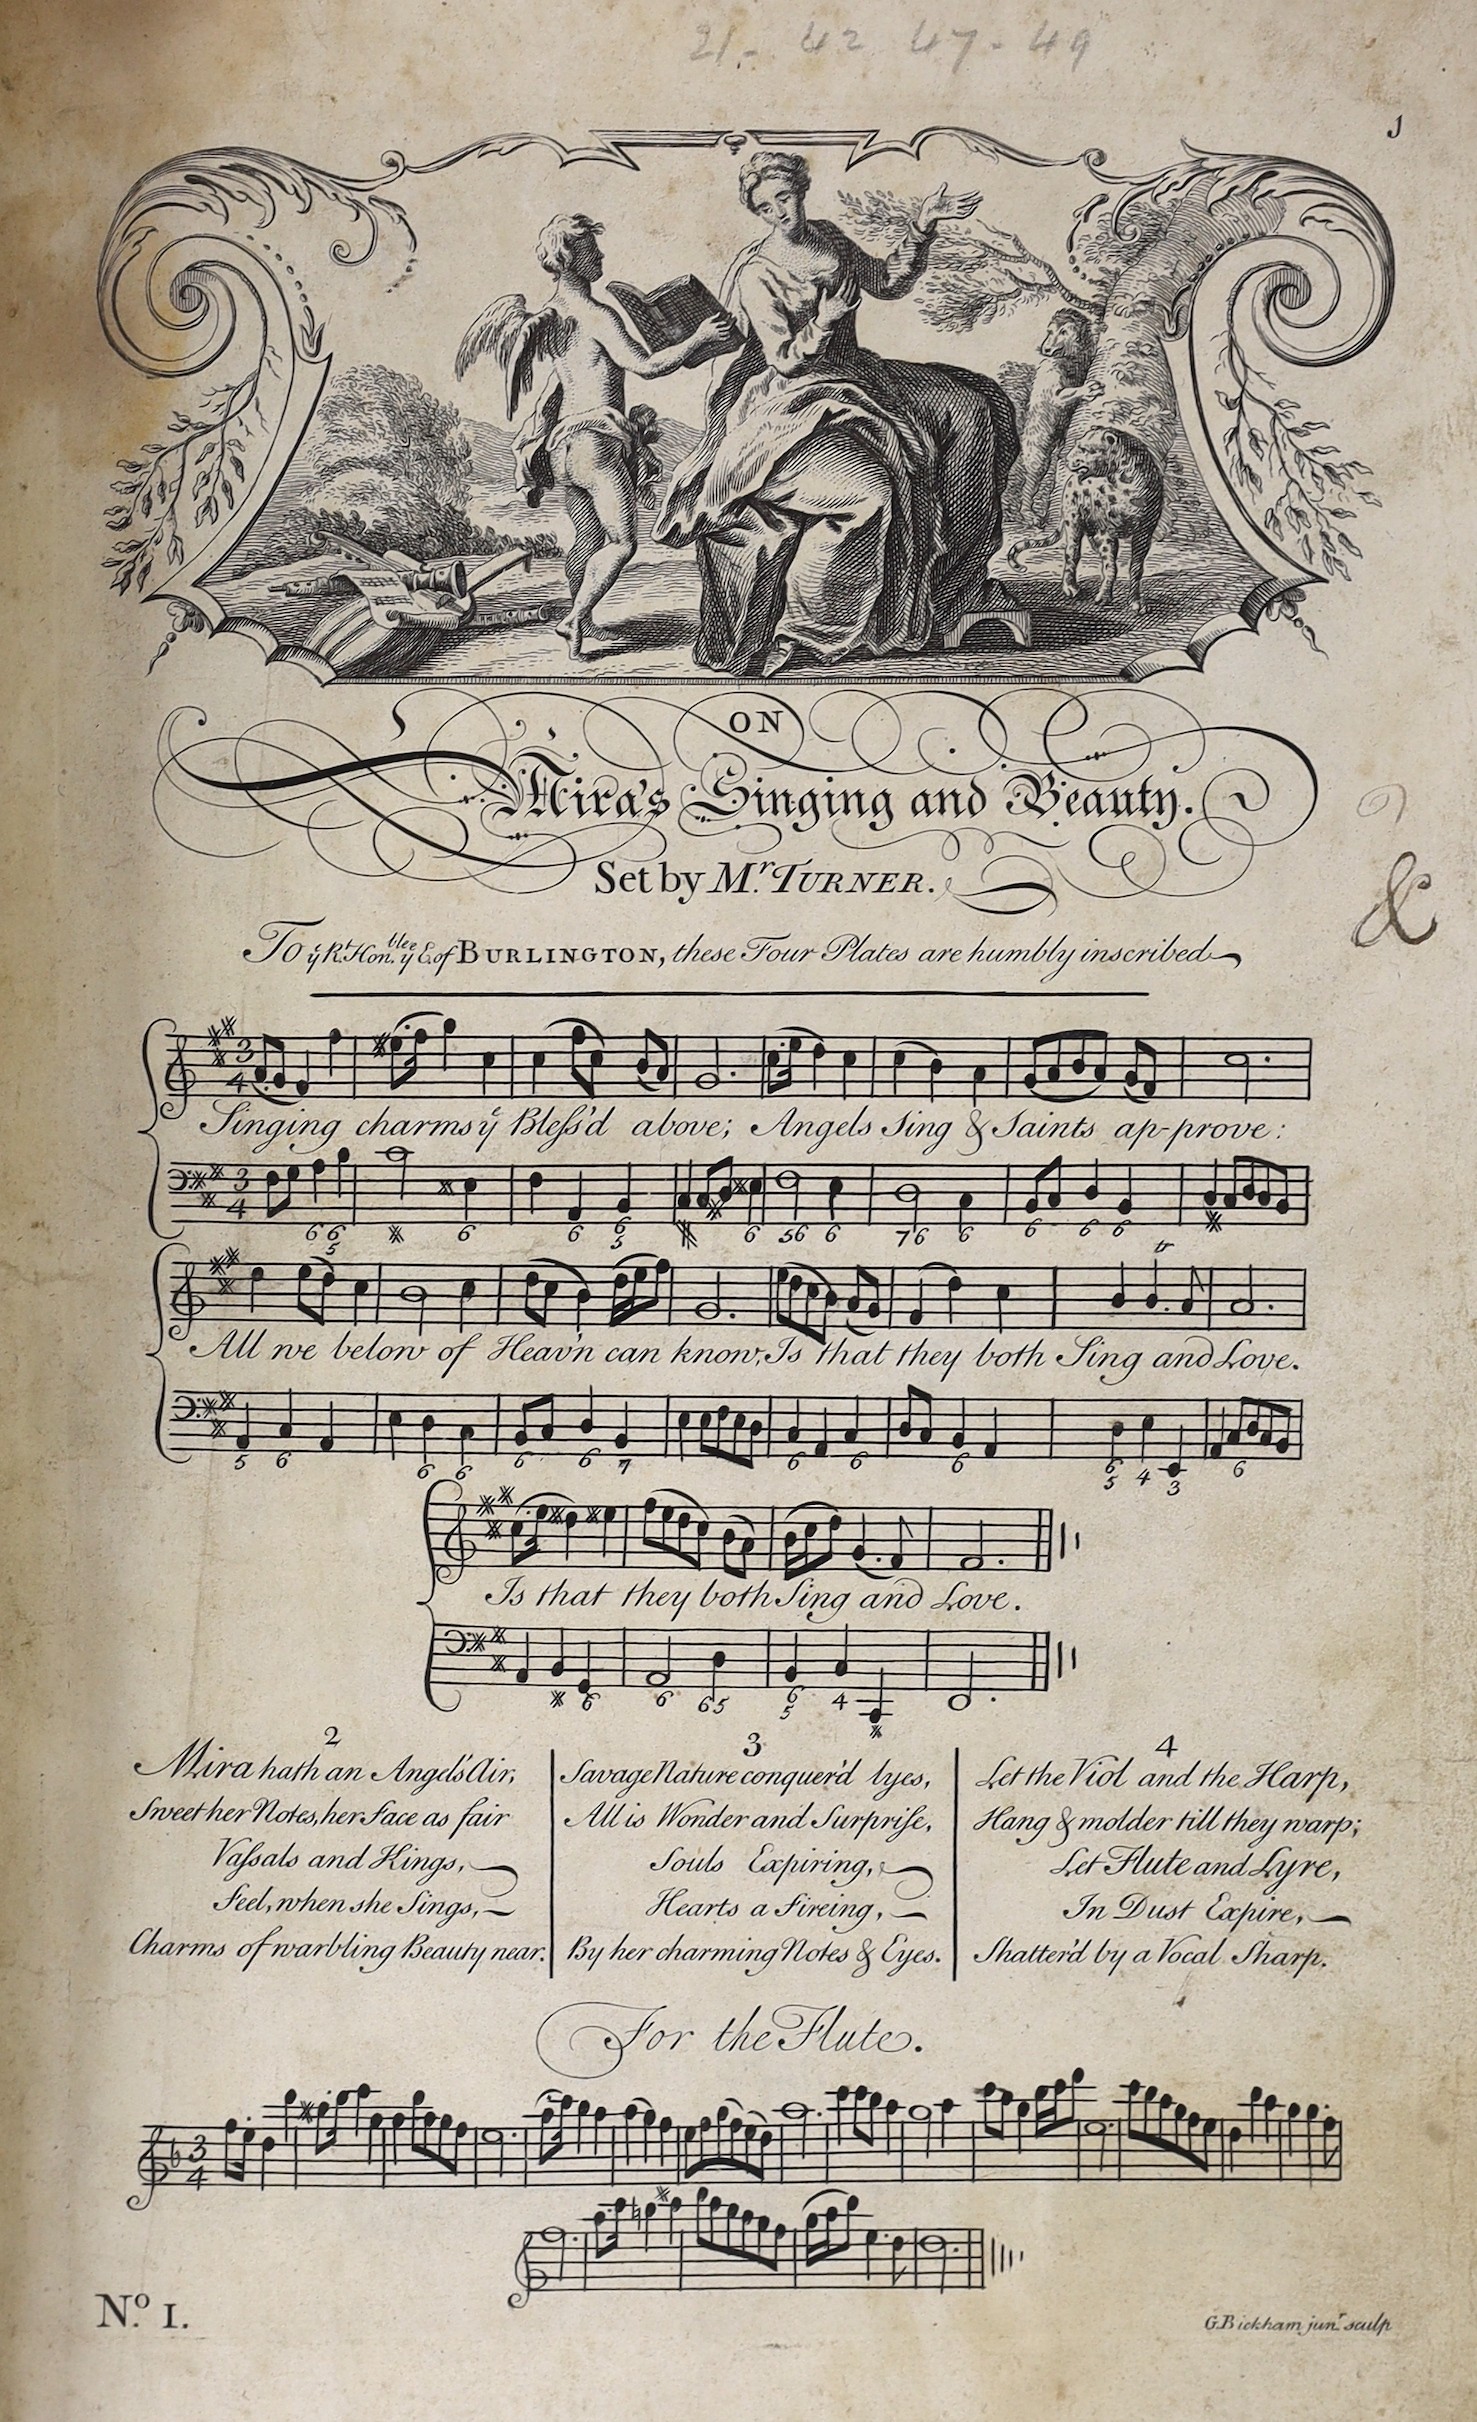 21 - 42 47 - 49
1
ON
Mira's Singing and Beauty.
Set by Mr. TURNER.
&
To ye Rt. Honblee ye E. of BURLINGTON, these Four Plates are humbly inscribed
3 4
Singing charms ye Bleſs'd above; Angels Sing & Saints ap-prove:
3 4
6 6 5 6 6 6 5 6 5 6 6 7 6 6 6 6 6
tr
All we below of Heav'n can know, Is that they both Sing and Love.
5 6 6 6 6 6 7 6 6 6 6 5 4 3 6
Is that they both Sing and Love.
6 6 6 5 6 5 4
2
Mira hath an Angel's Air,
Sweet her Notes, her Face as fair
Vaſsals and Kings,
Feel, when she Sings,
Charms of warbling Beauty near.
3
Savage Nature conquer'd lyes,
All is Wonder and Surpriſe,
Souls Expiring,
Hearts a Fireing,
By her charming Notes & Eyes.
4
Let the Viol and the Harp,
Hang & molder till they warp;
Let Flute and Lyre,
In Dust Expire,
Shatter'd by a Vocal Sharp.
For the Flute.
3 4
No. 1.
G. Bickham junr. sculp